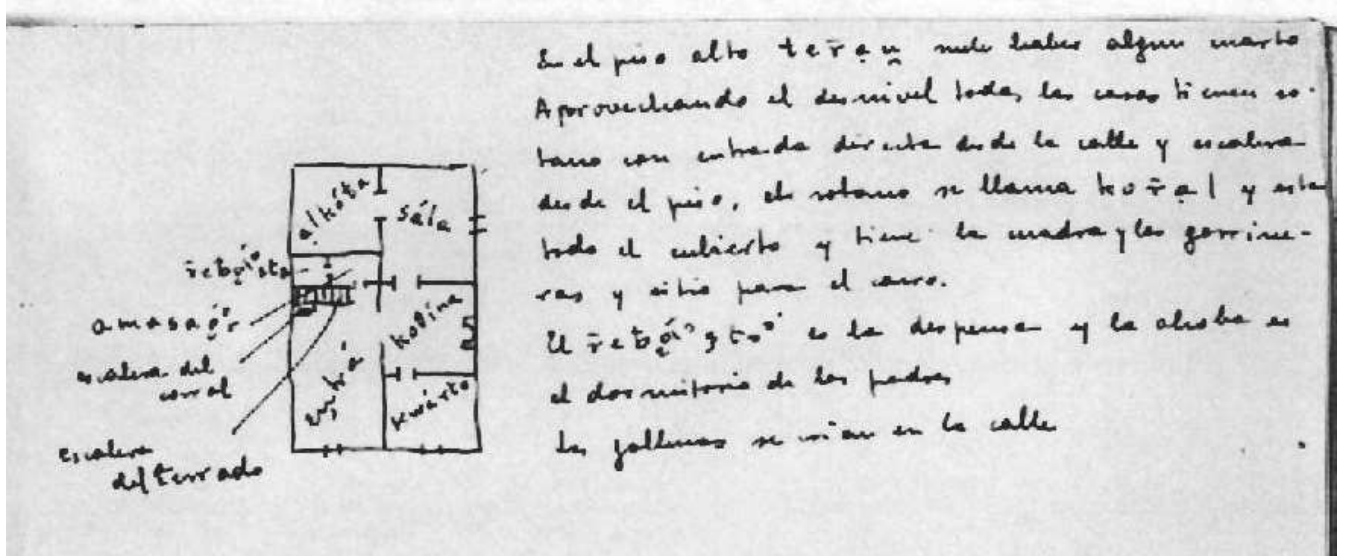 alkóƀa
sála
r̄eƀǫ́ᵒsto
amasaǫ́r
escalera del
corral
escalera
del terrado
ẹn̦trá
koθína
kwárto
En el piso alto ter̄ạu̯ suele haber algun cuarto
Aprovechando el desnivel todas las casas tienen so-
tano con entrada directa desde la calle y escalera
desde el piso, el sotano se llama kor̄ạl y esta
todo el cubierto y tiene la cuadra y las gorrine-
ras y sitio para el carro.
El r̄eƀǫ́ᵒsto es la despensa y la alcoba es
el dormitorio de los padres
Las gallinas se crian en la calle